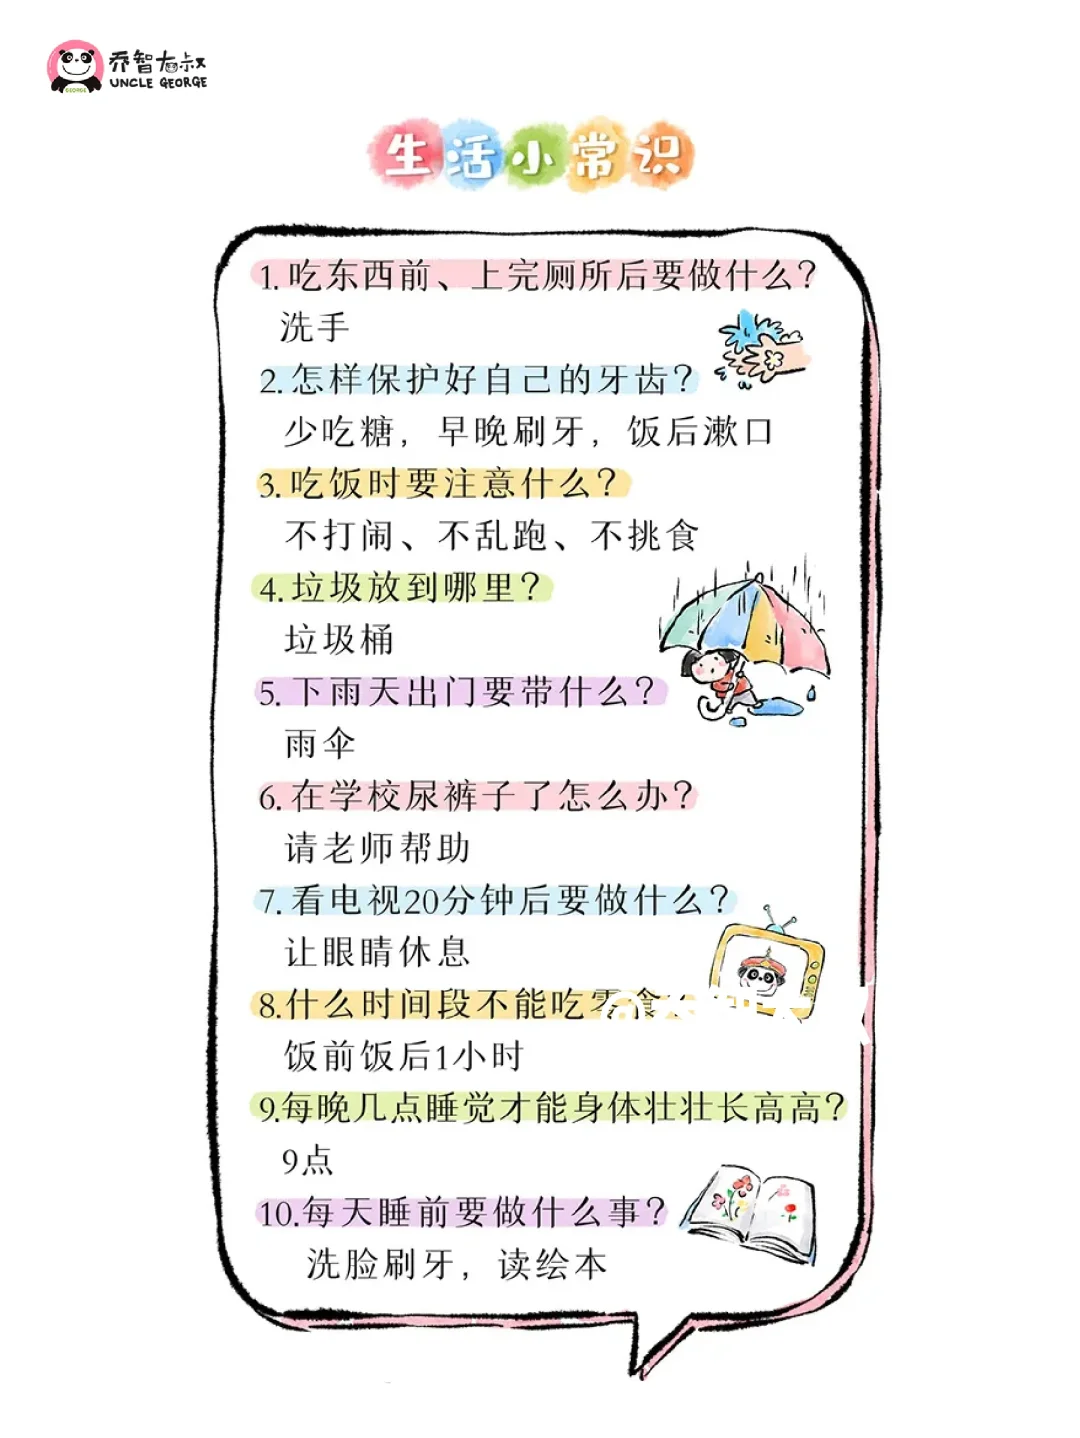 乔智大叔
UNCLE GEORGE
GEORGE
生活小常识
1.吃东西前、上完厕所后要做什么？
洗手
2.怎样保护好自己的牙齿？
少吃糖，早晚刷牙，饭后漱口
3.吃饭时要注意什么？
不打闹、不乱跑、不挑食
4.垃圾放到哪里？
垃圾桶
5.下雨天出门要带什么？
雨伞
6.在学校尿裤子了怎么办？
请老师帮助
7.看电视20分钟后要做什么？
让眼睛休息
8.什么时间段不能吃零食
饭前饭后1小时
9.每晚几点睡觉才能身体壮壮长高高？
9点
10.每天睡前要做什么事？
洗脸刷牙，读绘本